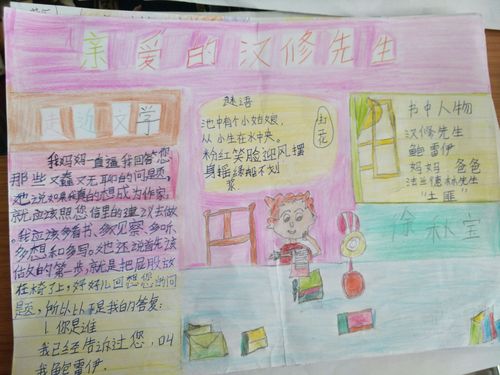 亲爱的汉修先生
走近文学
我妈妈一直逼我回答您
那些又蠢又无聊的问题,
她说如果我真的想成为作家,
就应该照您信里的建议去做
。我应该多看书、多观察、多听、
多想和多写。她还说首先该
做的第一步,就是把屁股放
在椅子上,好好儿回想您的问
题,所以以下是我的答复:
1 你是谁
我已经告诉过您,叫
我鲍雷伊.
谜语
池中有个小姑娘,
从小生在水中央。
粉红笑脸迎风摆
身摇绿船不划
桨
书中人物
汉修先生
鲍雷伊
妈妈 爸爸
法兰德林先生
"土匪"